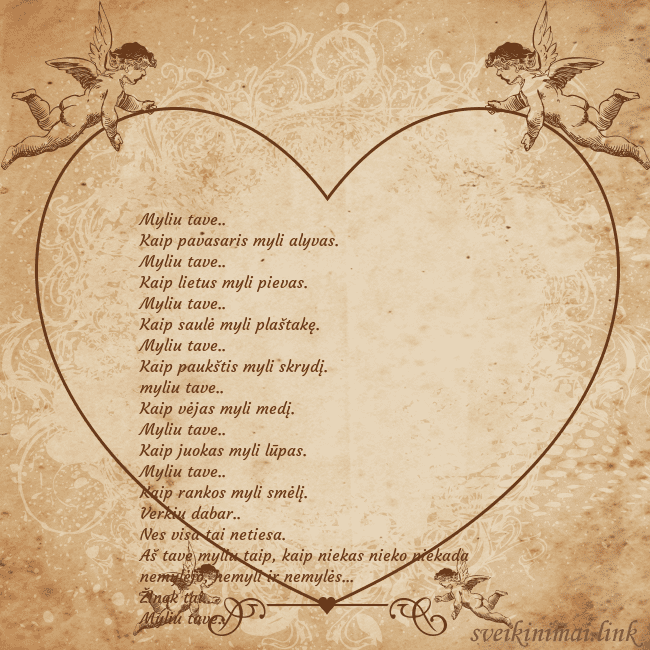 Myliu tave..
Kaip pavasaris myli alyvas.
Myliu tave..
Kaip lietus myli pievas.
Myliu tave..
Kaip saulė myli plaštakę.
Myliu tave..
Kaip paukštis myli skrydį.
myliu tave..
Kaip vėjas myli medį.
Myliu tave..
Kaip juokas myli lūpas.
Myliu tave..
Kaip rankos myli smėlį.
Verkiu dabar..
Nes visa tai netiesa.
Aš tave myliu taip, kaip niekas nieko niekada
nemylėjo, nemyli ir nemylės...
Žinok tai..
Myliu tave..
sveikinimai.link